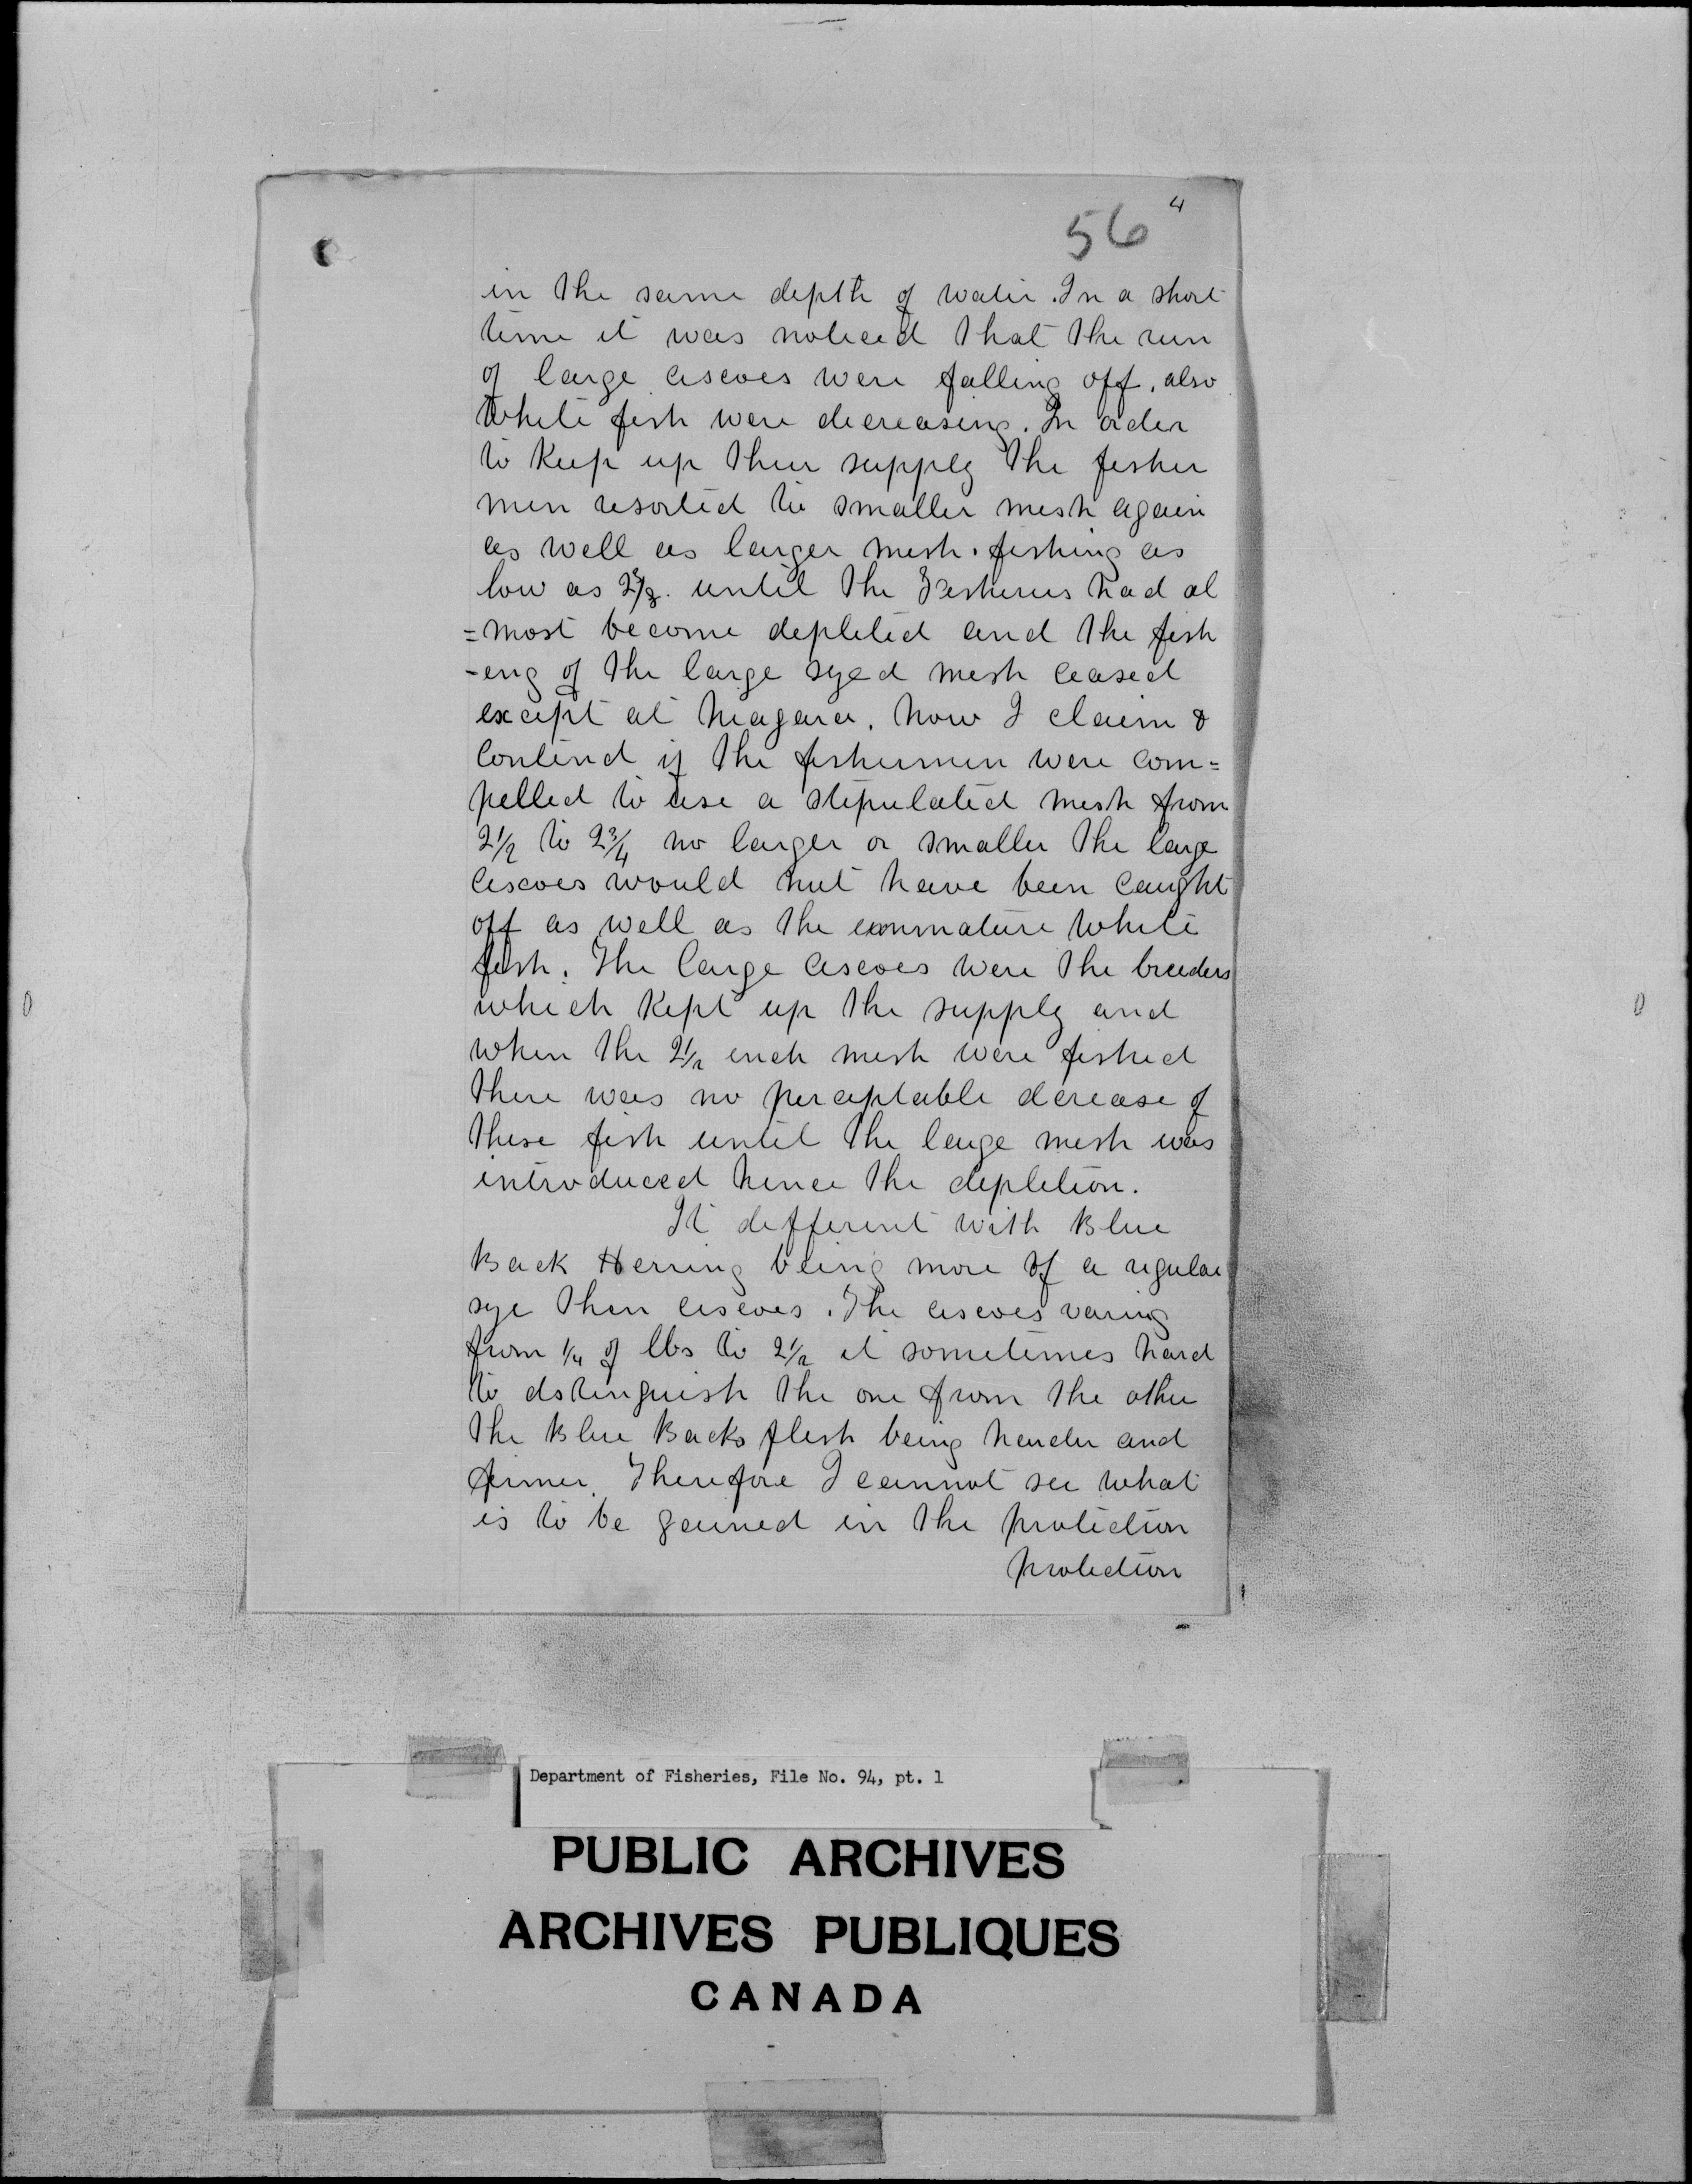 4
56
in the same depth of water. In a short
time it was noticed that the run
of large ciscoes were falling off, also
White fish were decreasing. In order
to Keep up their supply the fisher
men resorted to smaller mesh again
as well as larger mesh. fishing as
low as until the Fisheries had al
=most become depleted and the fish
-ing of the large syed mesh ceased
except at Niagara. Now I claim &
Contend if the fishermen were com=
pelled to use a stipulated mesh from
2 1/2 to 2 3/4 no larger or smaller the large
Ciscoes would not have been Caught
off as well as the immature White
fish. The large Ciscoes were the breeders
which Kept up the supply and
when the 2 1/2 inch mesh were fished
there was no perceptable decrease of
these fish until the large mesh was
introduced hence the depletion.
It different with Blue
Back Herring being more of a regular
sye then ciscoes. The ciscoes varing
from 1/4 of lbs to 2 1/2 it sometimes hard
to dstinguish the one from the other
the Blue Backs flesh being harder and
firmer. Therefore I cannot see what
is to be gained in the protection
protection
Department of Fisheries, File No. 94, pt. 1
PUBLIC ARCHIVES
ARCHIVES PUBLIQUES
CANADA